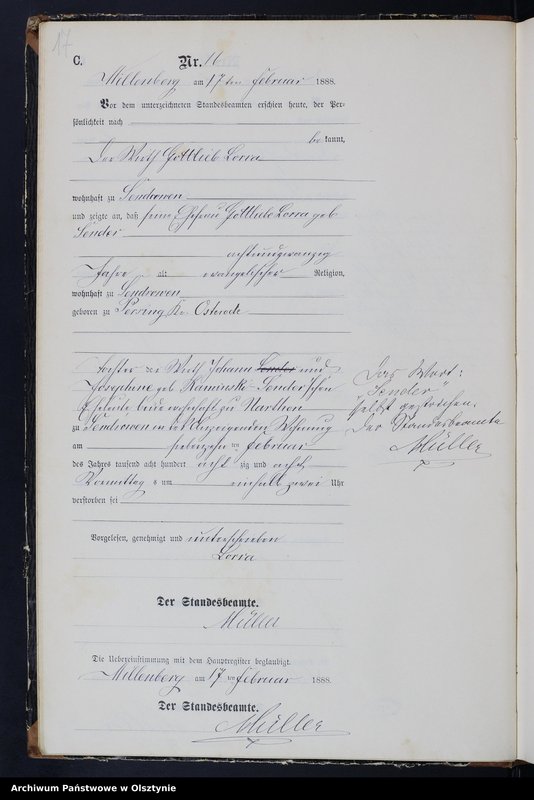 17
C.
Nr. 16
Millenberg am 17ten Februar 1888.
Vor dem unterzeichneten Standesbeamten erschien heute, der Per-
sönlichkeit nach
be kannt,
Der Wirth Gottlieb Lorra
wohnhaft zu Sendrowen
und zeigte an, daß seine Ehefrau Gottliebe Lorra geb
Sender
achtundzwanzig
Jahre alt evangelischer Religion,
wohnhaft zu Sendrowen
geboren zu Kr. Osterode
Tochter der Wirth Johann Sender und
Josephine geb Kaminski-Sender'schen
Eheleute beide wohnhaft zu
zu Sendrowen in des Anzeigenden Wohnung
am siebzehn ten Februar
des Jahres tausend acht hundert acht zig und acht
Vormittag s um zwei Uhr
verstorben sei
Das Wort:
"Sender"
selbst gestrichen.
Der Standesbeamte
Müller
Vorgelesen, genehmigt und unterschrieben
Lorra
Der Standesbeamte.
Müller
Die Uebereinstimmung mit dem Hauptregister beglaubigt.
Millenberg am 17 ten Februar 1888.
Der Standesbeamte.
Müller
Archiwum Państwowe w Olsztynie